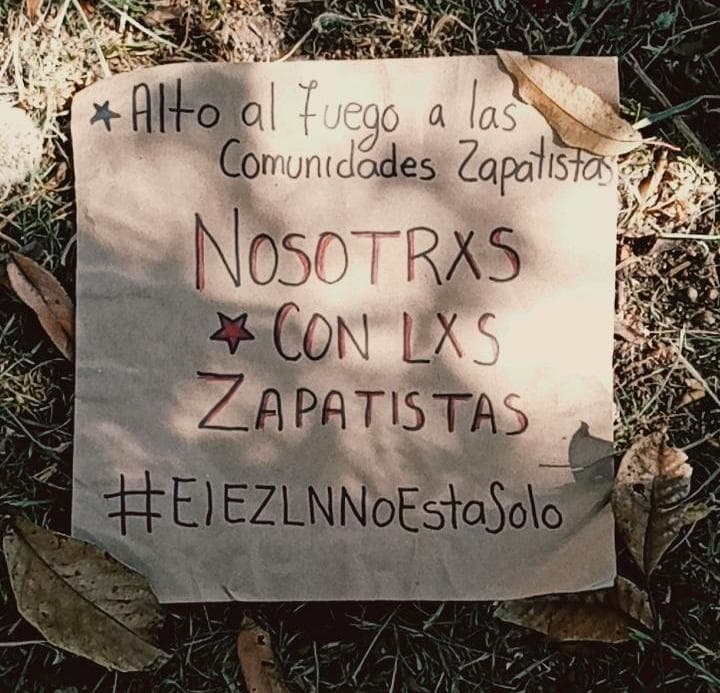 Alto al fuego a las
Comunidades Zapatistas
NOSOTRXS
CON LXS
ZAPATISTAS
#ElEZLNNoEstaSolo